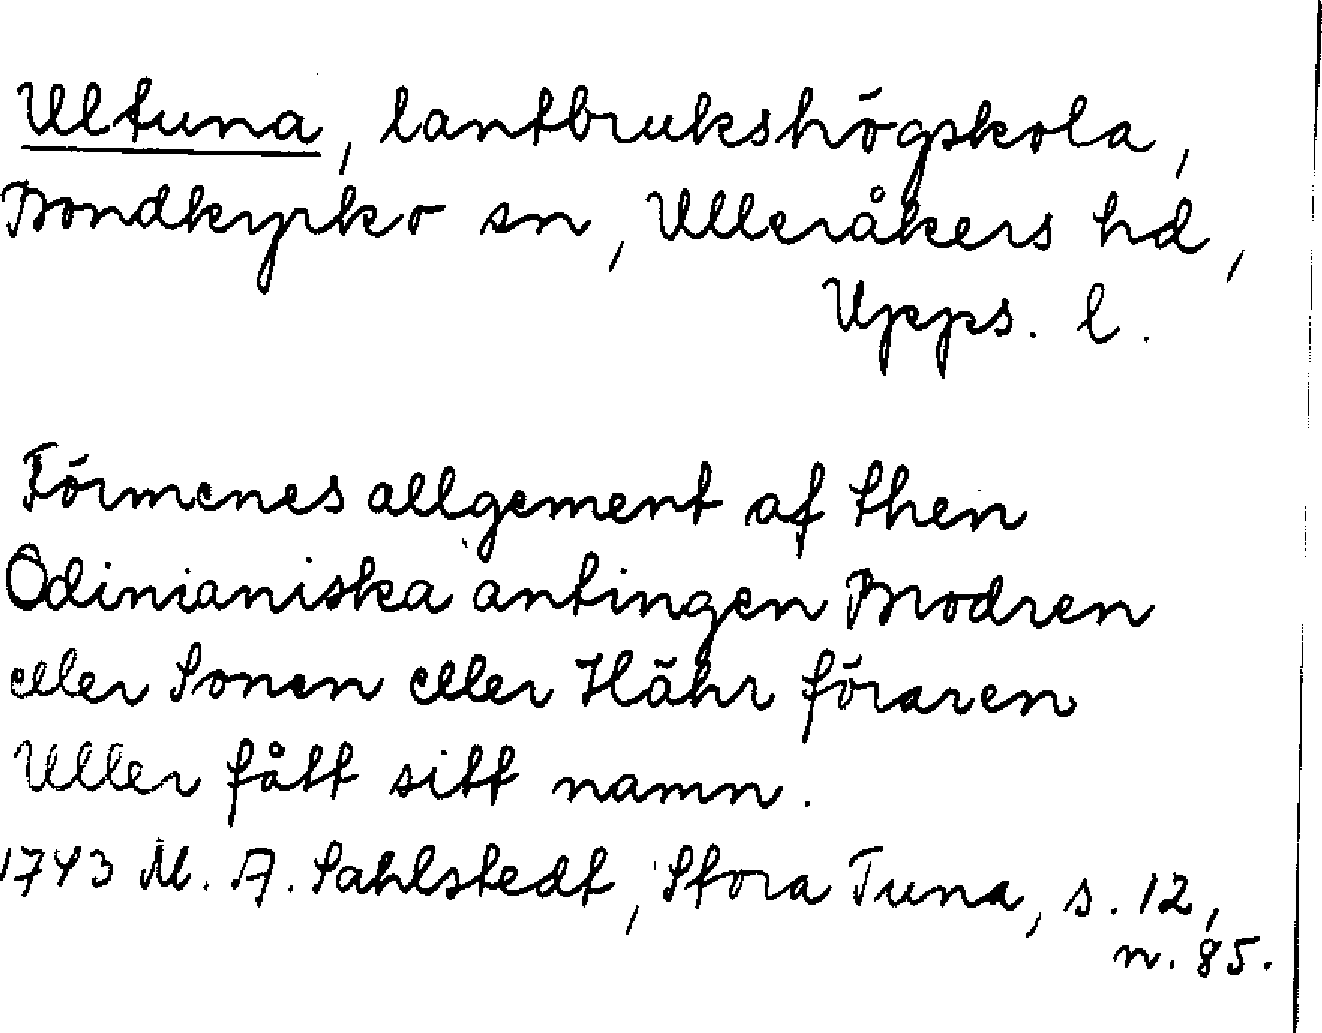 Ultuna, lantbrukshögskola,
Bondkyrko sn, Ulleråkers hd,
Upps. l.
Förmenes allgement af then
Odinianiska antingen Modren
eller Sonen eller Hähr föraren
Uller fått sitt namn.
1743 M. A. Sahlstedt, Stora Tuna, s. 12,
n. 85.